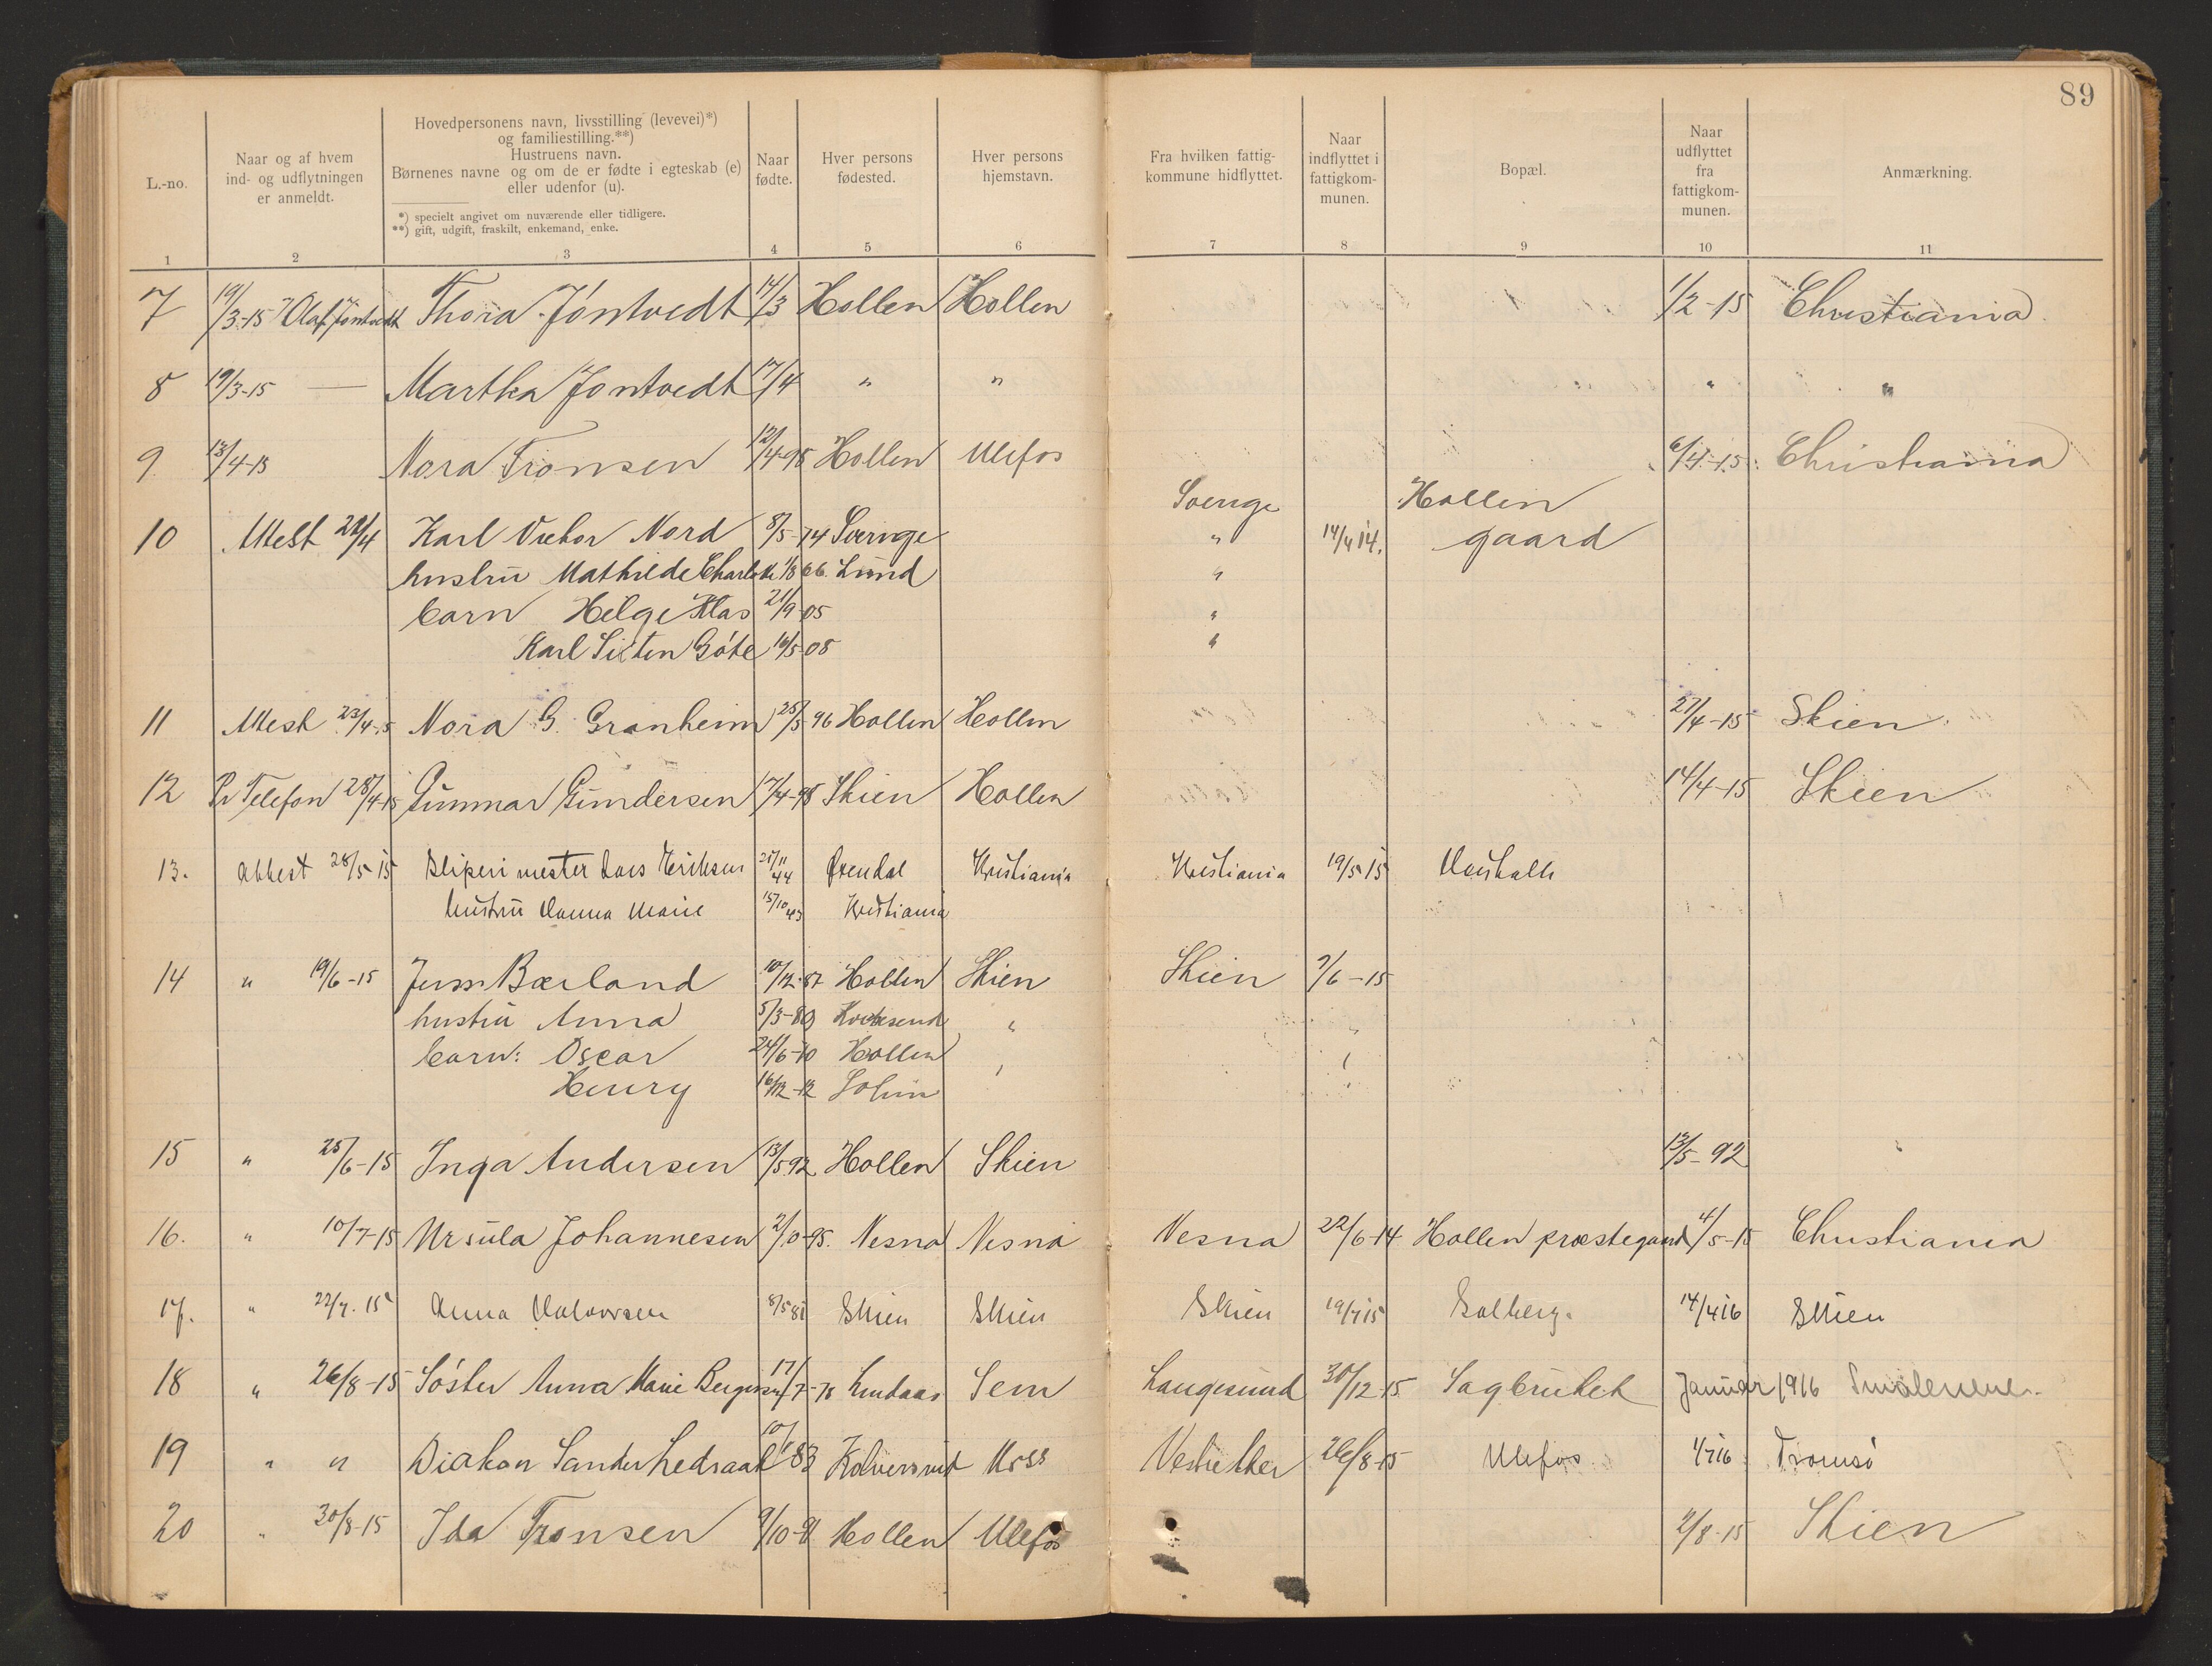 89
L.-no.
Naar og af hvem
ind- og udflytningen
er anmeldt.
Hovedpersonens navn, livsstilling (levevei)*)
og familiestilling.**)
Hustruens navn.
Børnenes navne og om de er fødte i egteskab (e)
eller udenfor (u).
*) specielt angivet om nuværende eller tidligere.
**) gift, udgift, fraskilt, enkemand, enke.
Naar
fødte.
Hver persons
fødested.
Hver persons
hjemstavn.
Fra hvilken fattig-
kommune hidflyttet.
Naar
indflyttet i
fattigkom-
munen.
Bopæl.
Naar
udflyttet
fra
fattigkom-
munen.
Anmærkning.
1 2 3 4 5 6 7 8 9 10 11
7 19/3-15 Olaf Jóntvedt Thora Jóntvedt 14/3 Hollen Hollen 1/2-15 Christiania
8 19/3-15 — Martha Jontvedt 17/4 " " " "
9 13/4-15 Nora Tronsen 12/4-98 Hollen Ulefos 6/4-15 Christiania
Sverige Hollen
10 Attest 21/4 Karl Victor Nord 8/5-74 Sverige " 14/4 14. gaard
hustru Mathilde Charlotte 1/8 66 Lund "
barn Helge Klas 21/9-05 "
Karl Sixten Göte 16/5-08 "
11 Attest 23/4-15 Nora G. Granheim 25/5 96 Hollen Hollen 27/4-15 Skien
12 Pr Telefon 28/4-15 Gunnar Gundersen 17/4-98 Skien Hollen 14/4-15 Skien
13. Attest 28/5 15 Sliperimester Lars Eriksen 21/11 44 Kristiania Kristiania 19/5 15
hustru Hanna Marie 15/10 43 Kristiania
14 " 19/6-15 Jens Bærland 10/12-87 Hollen Skien Skien 7/6-15
hustru Anna 5/3-89 "
barn: Oscar 24/6-10 Hollen
Henry 16/12-12 Solum
15 " 25/6-15 Inga Andersen 13/5 92 Hollen Skien 13/5-92
16. " 10/7-15 Ursula Johannesen 2/10-95. Nesna Nesna Nesna 22/6-14 Hollen præstegaard 4/5-15 Christiania
17. " 22/7. 15 Anna Halvorsen 8/5 81 Skien Skien Skien 19/7 15 Solberg. 14/4 16 Skien
18 " 26/8-15 Sóster Anna Marie Bergersen 17/7-78 Lindaas Sem Langesund 30/12-15 Sagbruket Januar 1916 Smålenene.
19 " " Diakon Sander 10/1 83 Moss Vestre Aker 26/8-15 Ulefos 1/7 16 Tromsö
20 " 30/8-15 Ida Tronsen 9/10-91 Hollen Ulefos 2/8-15 Skien